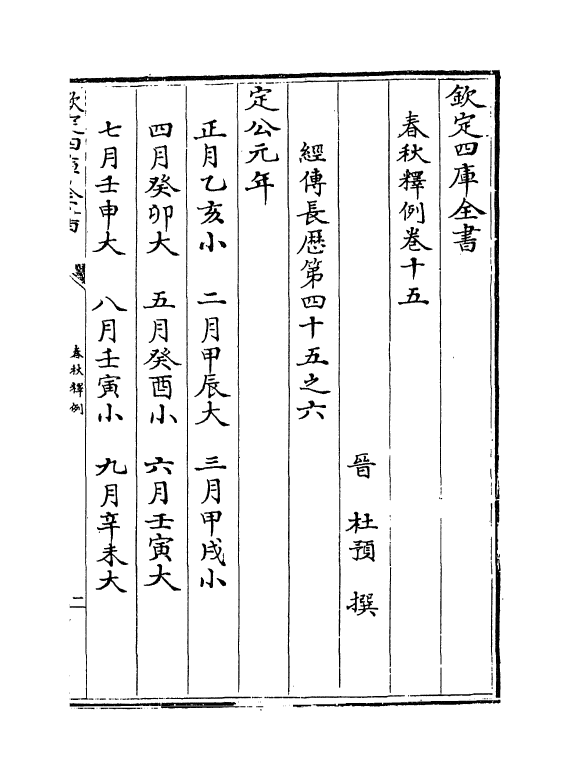 欽定四庫全書
春秋釋例卷十五
晉 杜預 撰
經傳長厯第四十五之六
定公元年
正月乙亥小 二月甲辰大 三月甲戌小
四月癸卯大 五月癸酉小 六月壬寅大
七月壬申大 八月壬寅小 九月辛未大
欽定四庫全書
春秋釋例